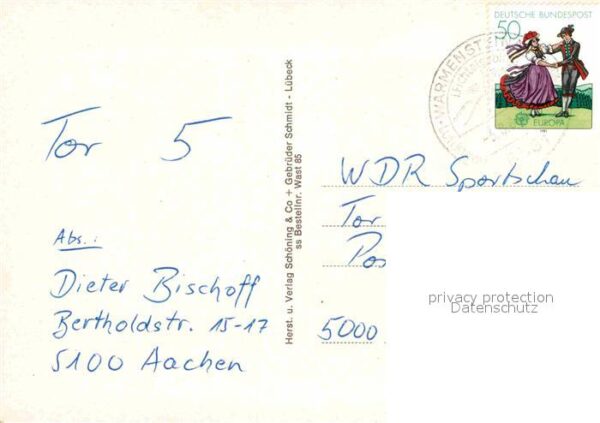 DEUTSCHE BUNDESPOST
50
EUROPA
Tor 5
Abs.:
Dieter Bischoff
Bertholdstr. 15-17
5100 Aachen
Herst. u. Verlag Schöning & Co + Gebrüder Schmidt - Lübeck
ss Bestellnr. Wast 85
WDR Sportschau
Tor
5000
privacy protection
Datenschutz